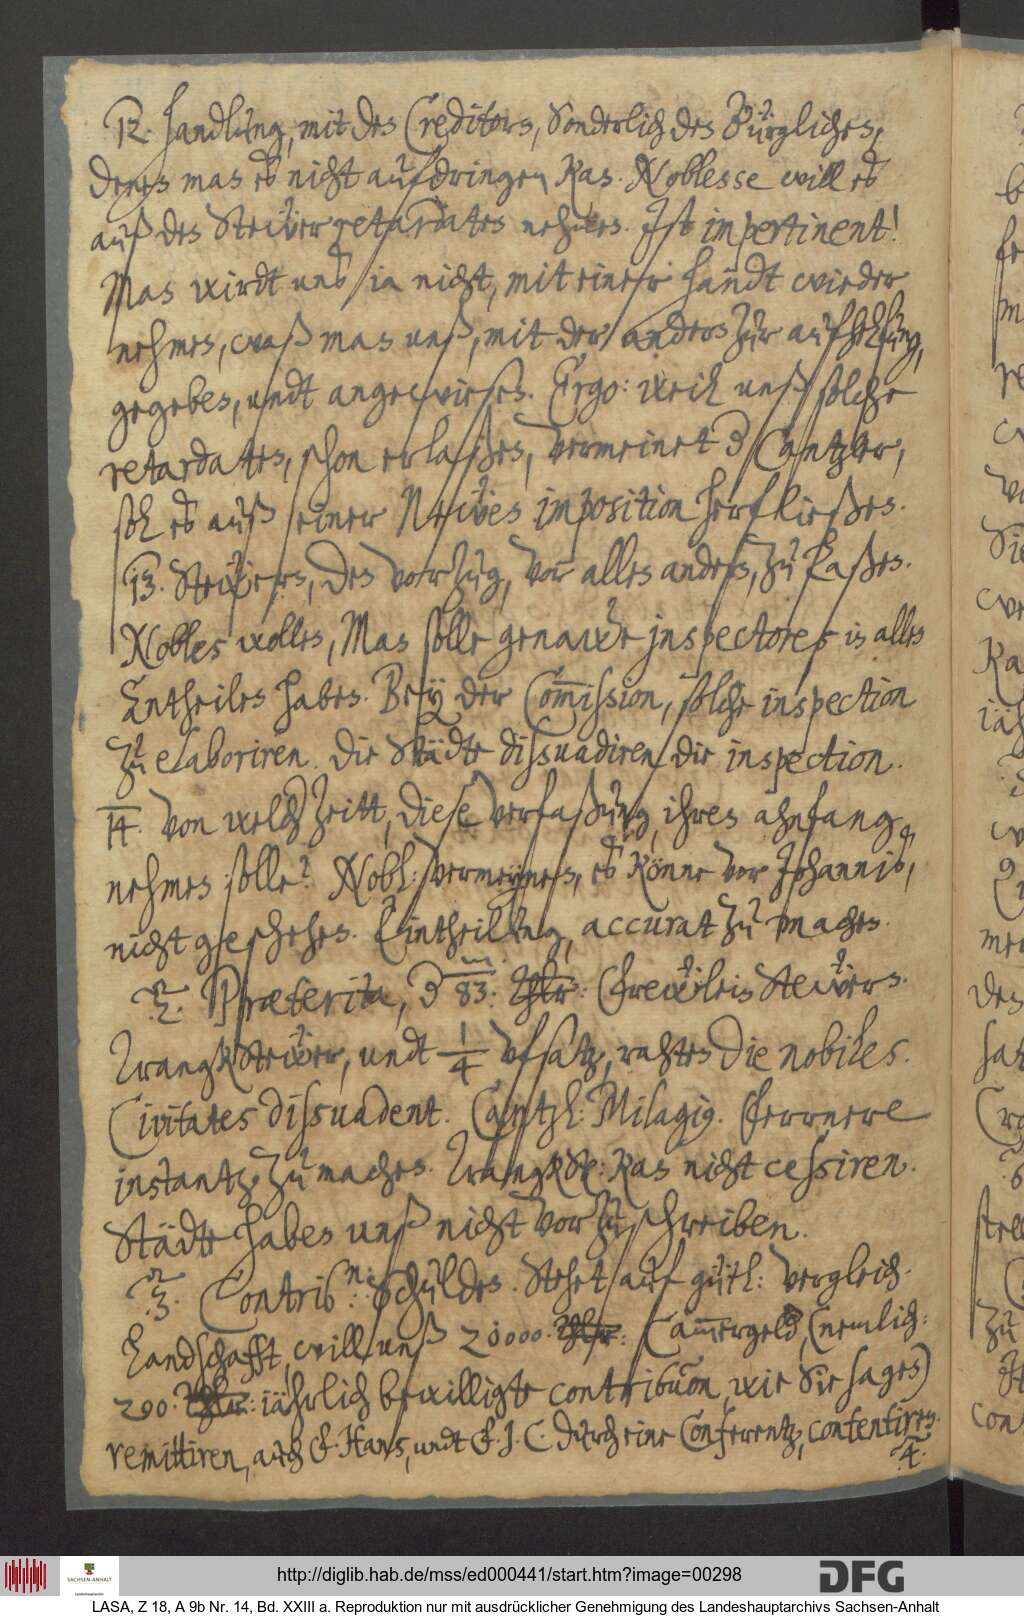 12. Handlung, mit den Creditorn, Sonderlich den Bürglichen,
denen man es nicht aufdringen kan. Noblesse will es
auß den Steüer retardaten nehmen. Ist impertinent!
Man wirdt uns ia nicht, mit einer handt wieder
nehmen, waß man unß, mit der andern zur aufhelfung,
gegeben, undt angewiesen. Ergo: weil unß solche
retardaten, schon erlaßen, vermeinet der Cantzler,
soll es auß einer Newen imposition herfließen.
13. Steüern, den vorzug, vor allen andern, zu laßen.
Nobles wollen, Man solle genawe inspectores in allen
Antheilen haben. Bey der Commission, solche inspection
zu elaboriren. Die Städte dissuadiren die inspection.
14. Von welch Zeitt, diese verfaßung, ihren ahnfang,
nehmen solle? Nobl: vermeynen, es könne vor Johannis,
nicht geschehen. Eintheilung, accurat zu machen.
2. Præterita, der 83. m Thlr: Frewlein Stewern.
Tranckstewer, undt 1/4 ufsatz, rahten die nobiles.
Civitates dissuadent. Cantzl: Milagius. Ferrnere
instantz, zu machen. Tranckst: kan nicht cessiren.
Städte haben unß nicht vorzuschreiben.
3. Contrib.n: Schulden. Stehet auf gütl: vergleich.
Landschafft, will unß 20000 Thlr: Cammergeld, (nemlich:
290. Thlr: iährlich bewilligte contribution, wie Sie sagen)
remittiren, auch F. Hans, undt F. J. C. durch eine Conferentz, contentiren.
4.
http://diglib.hab.de/mss/ed000441/start.htm?image=00298
DFG
SACHSEN-ANHALT
LASA, Z 18, A 9b Nr. 14, Bd. XXIII a. Reproduktion nur mit ausdrücklicher Genehmigung des Landeshauptarchivs Sachsen-Anhalt